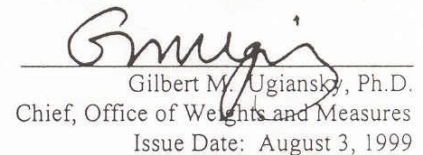 Gilbert M. Ugiansky, Ph.D.
Chief, Office of Weights and Measures
Issue Date: August 3, 1999